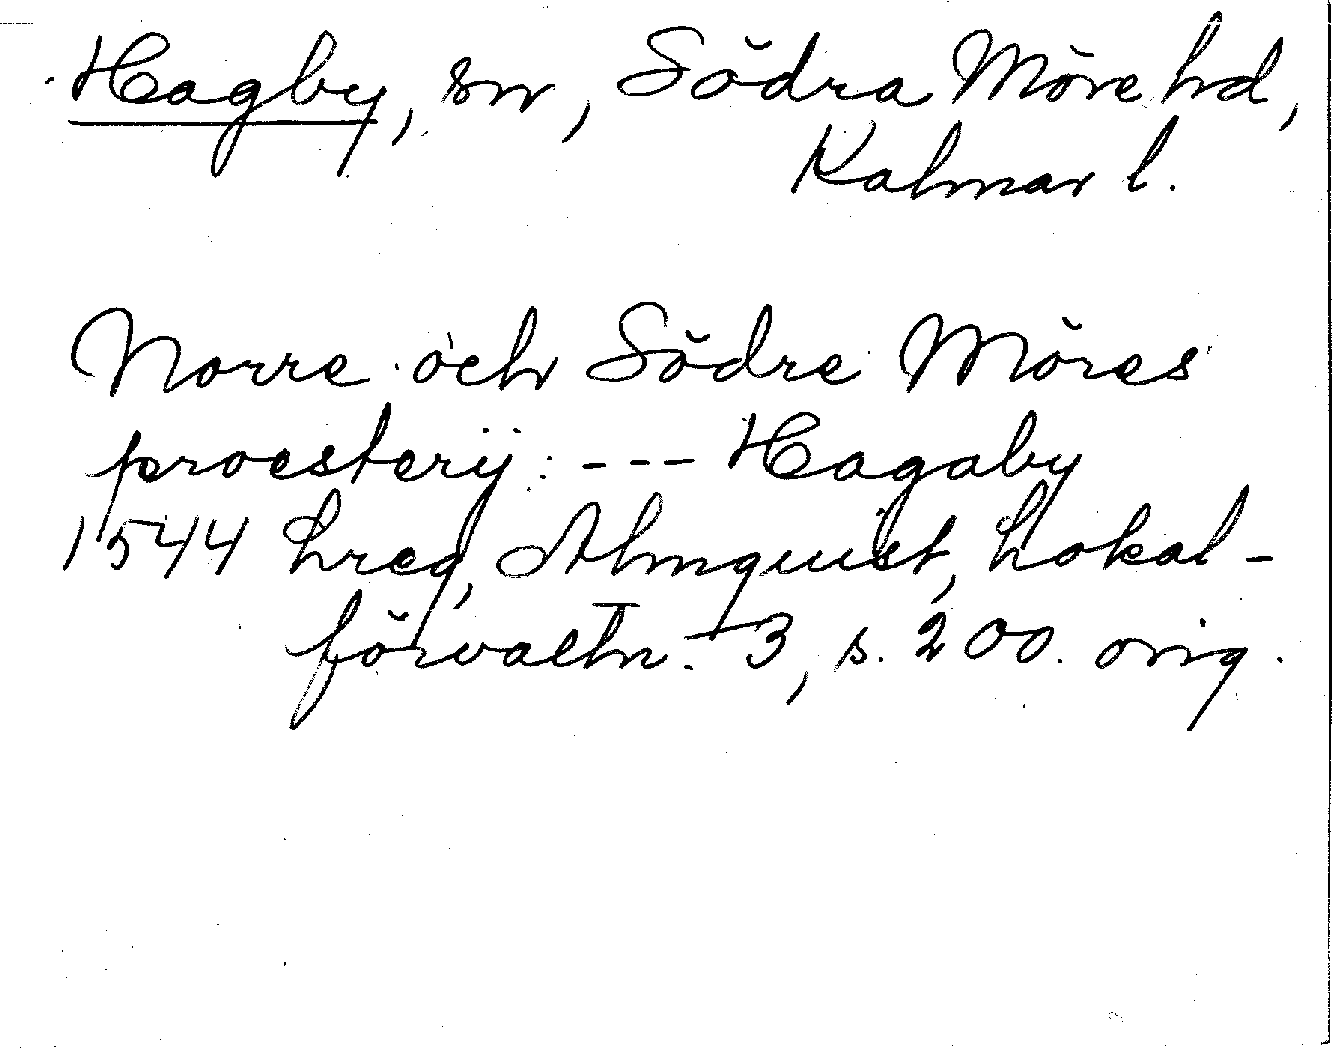 Hagby, sn, Södra Möre hd,
Kalmar l.
Norre och Södre Möres
proesterij: --- Hagaby
1544 Lreg, Almquist, Lokal-
förvaltn. I 3, s. 200. orig.